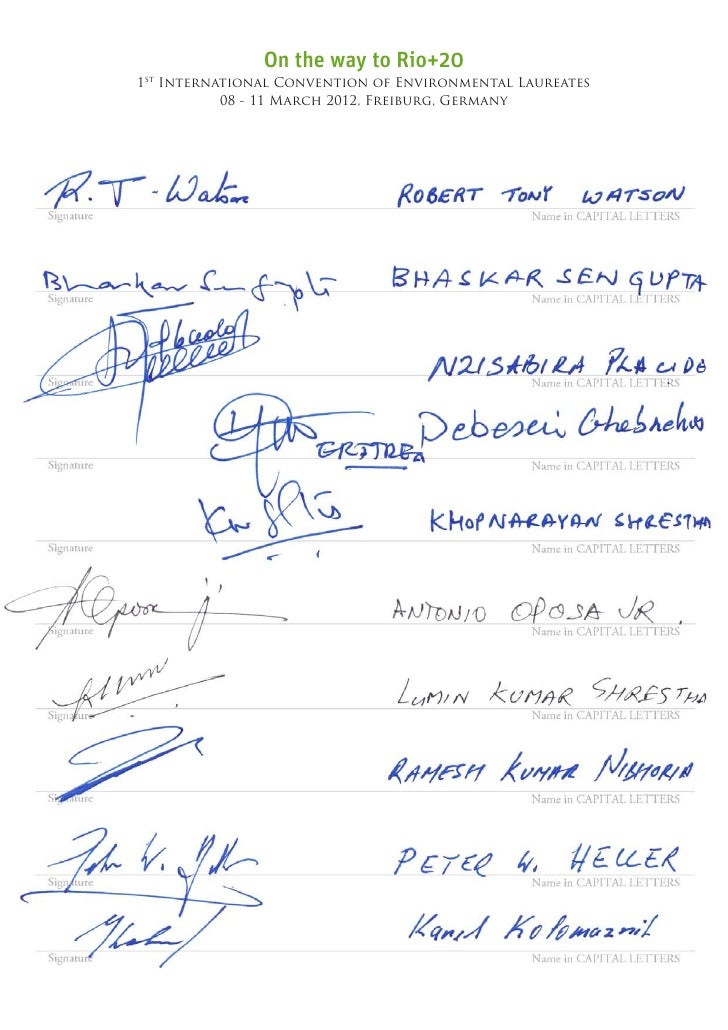 On the way to Rio+20
1ST International Convention of Environmental Laureates
08 - 11 March 2012, Freiburg, Germany
R. T - Watson ROBERT TONY WATSON
Signature Name in CAPITAL LETTERS
Bhaskar Sen Gupta BHASKAR SEN GUPTA
Signature Name in CAPITAL LETTERS
NZISABIRA PLACIDE
Signature Name in CAPITAL LETTERS
ERITREA Debesai Ghebrehiw
Signature Name in CAPITAL LETTERS
KHOPNARAYAN SHRESTHA
Signature Name in CAPITAL LETTERS
ANTONIO OPOSA JR.
Signature Name in CAPITAL LETTERS
LUMIN KUMAR SHRESTHA
Signature Name in CAPITAL LETTERS
RAMESH KUMAR NIBHORIA
Signature Name in CAPITAL LETTERS
PETER W. HELLER
Signature Name in CAPITAL LETTERS
Karel Kolomaznik
Signature Name in CAPITAL LETTERS